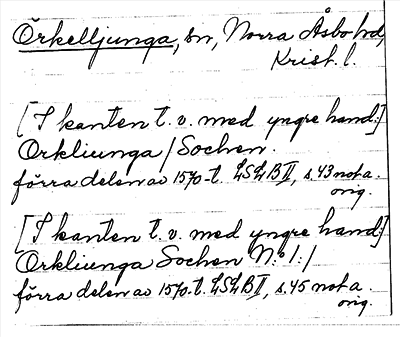 Örkelljunga, sn, Norra Åsbo hd,
Krist. l.
[I kanten t. v. med yngre hand:]
Orkliunga / Sochen.
förra delen av 1570-t. LSLB II, s. 43 not a.
orig.
[I kanten t. v. med yngre hand:]
Orkliunga Sochen No. 1: /
förra delen av 1570-t. LSLB II, s. 45 not a.
orig.